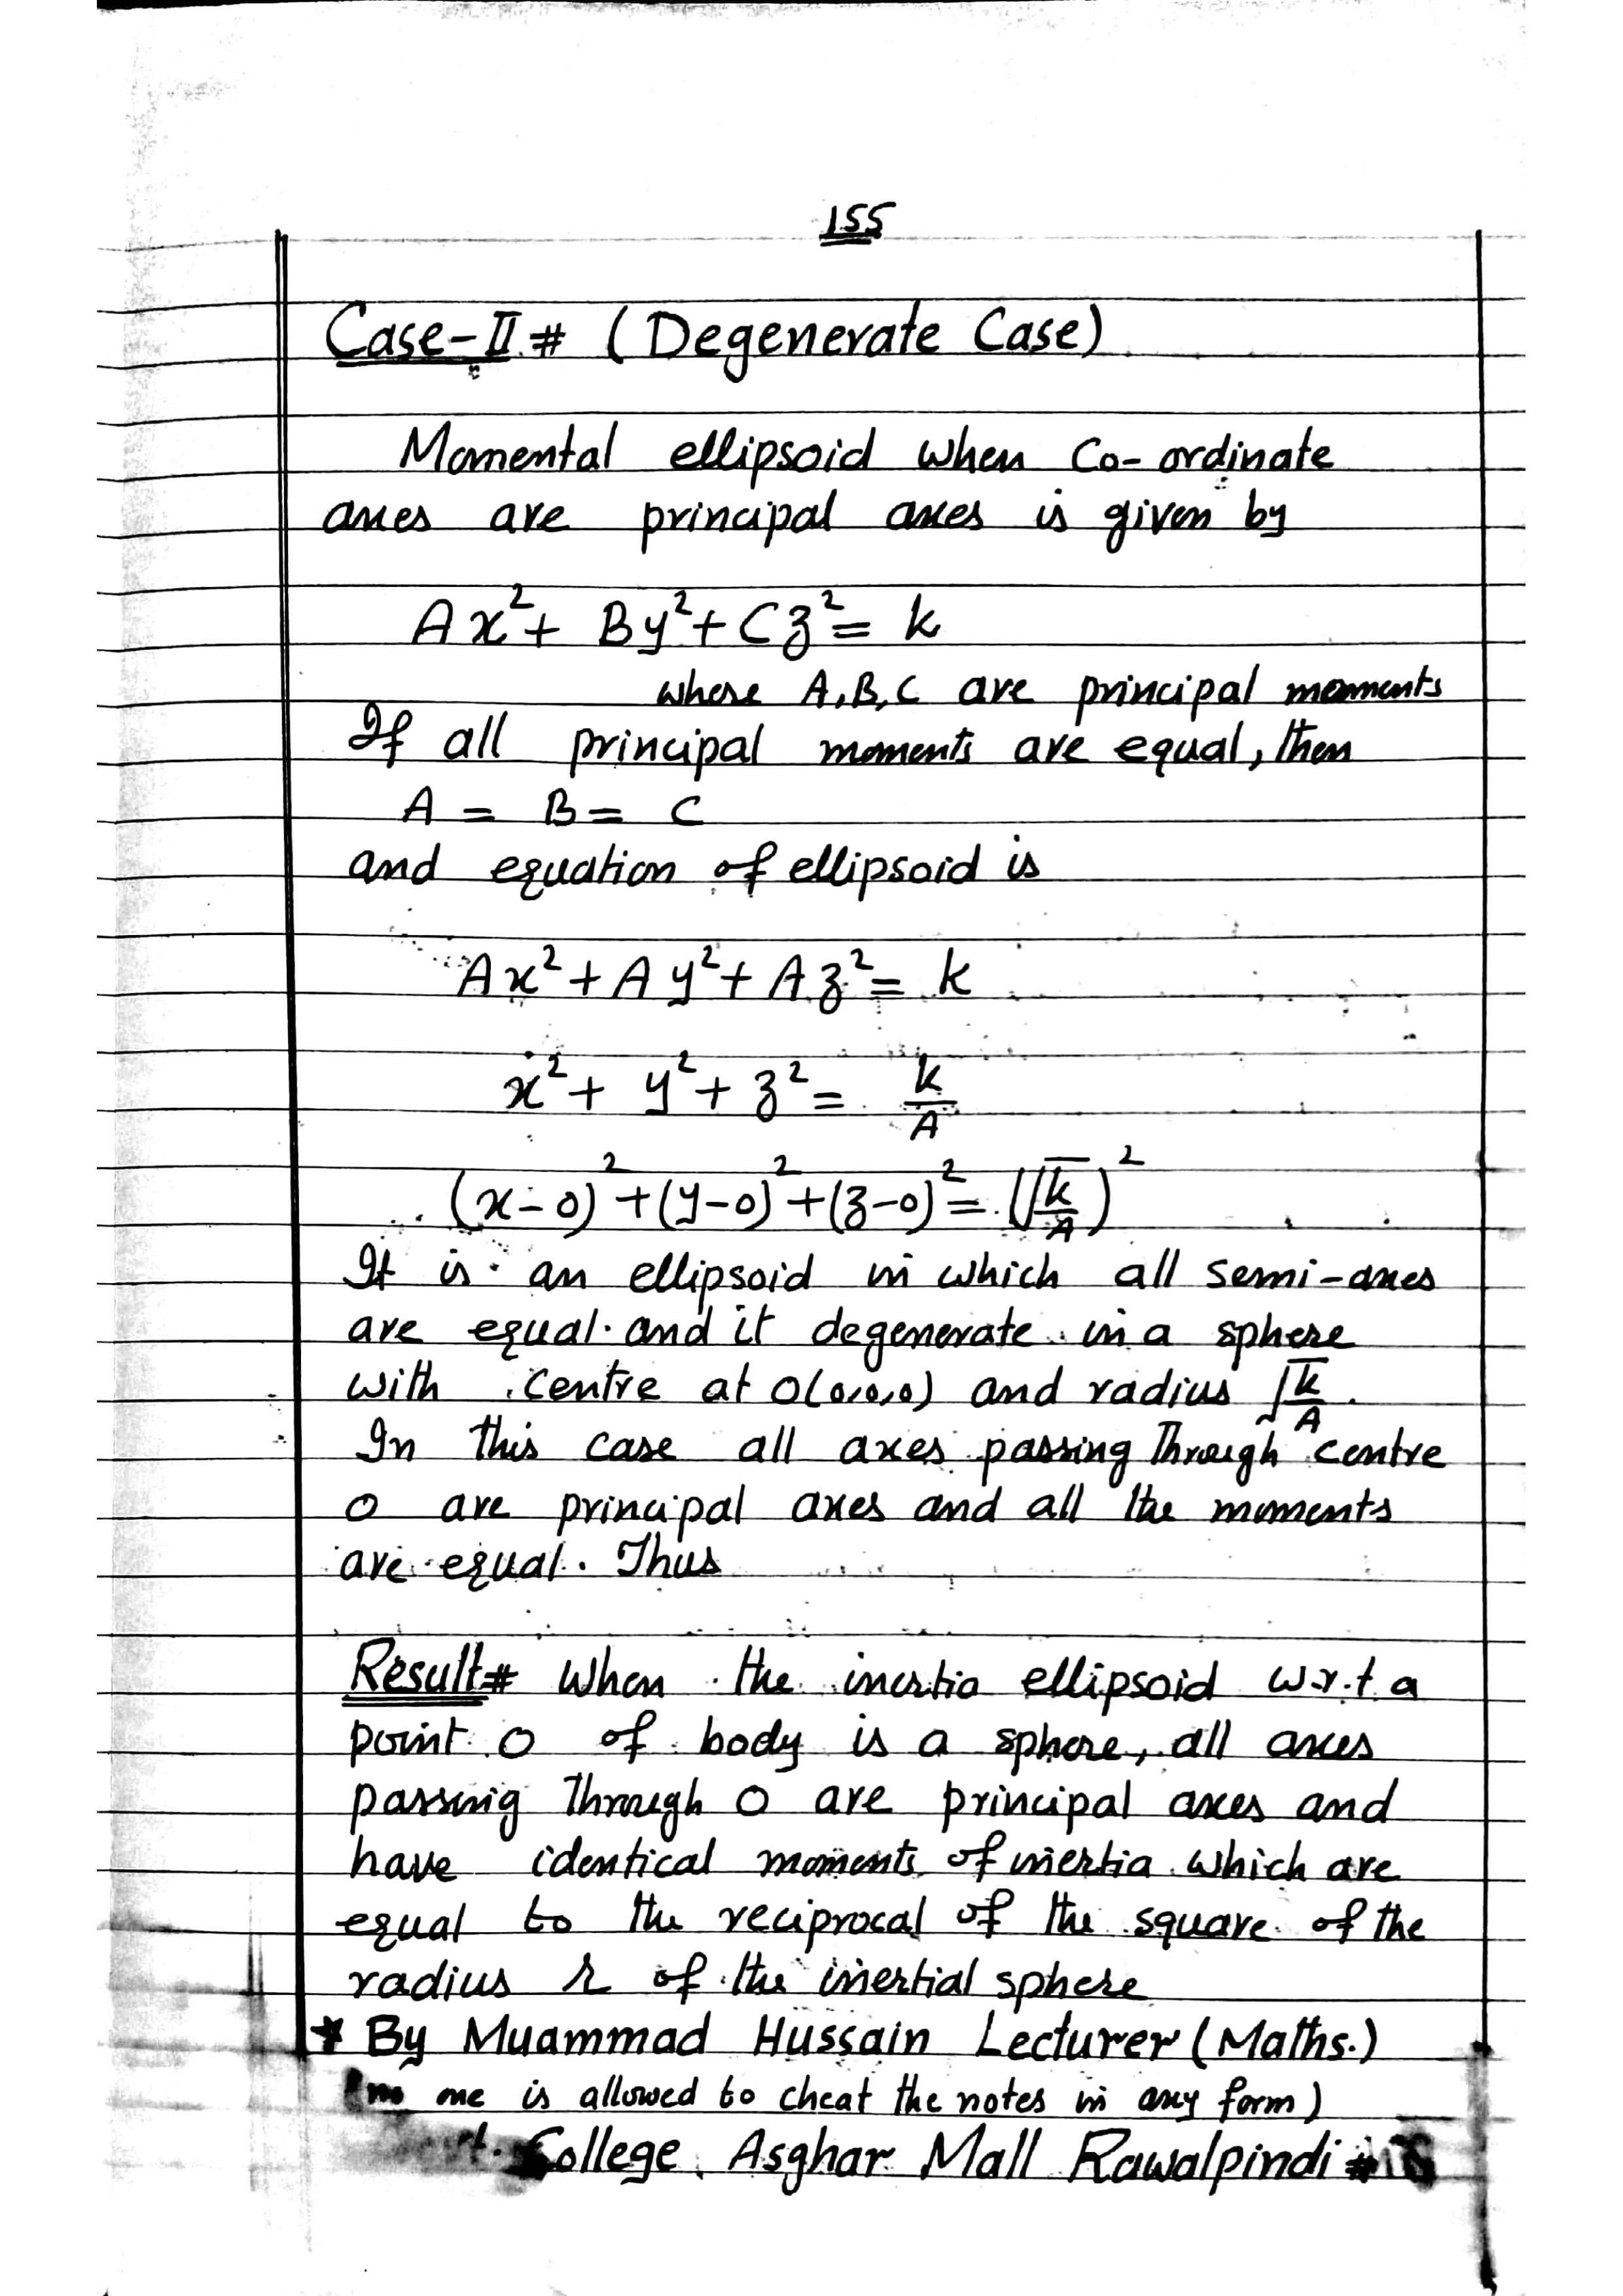 155
Case-II # (Degenerate Case)
Momental ellipsoid when Co-ordinate
axes are principal axes is given by
Ax² + By² + Cz² = k
where A,B,C are principal moments
If all principal moments are equal, then
A = B = C
and equation of ellipsoid is
Ax² + Ay² + Az² = k
x² + y² + z² = k/A
(x-0)² + (y-0)² + (z-0)² = (√k/A)²
It is an ellipsoid in which all semi-axes
are equal and it degenerate in a sphere
with centre at O(0,0,0) and radius √k/A.
In this case all axes passing through centre
O are principal axes and all the moments
are equal. Thus
Result# When the inertia ellipsoid w.r.t a
point O of body is a sphere, all axes
passing through O are principal axes and
have identical moments of inertia which are
equal to the reciprocal of the square of the
radius r of the inertial sphere
* By Muammad Hussain Lecturer (Maths.)
(no one is allowed to cheat the notes in any form)
College Asghar Mall Rawalpindi #